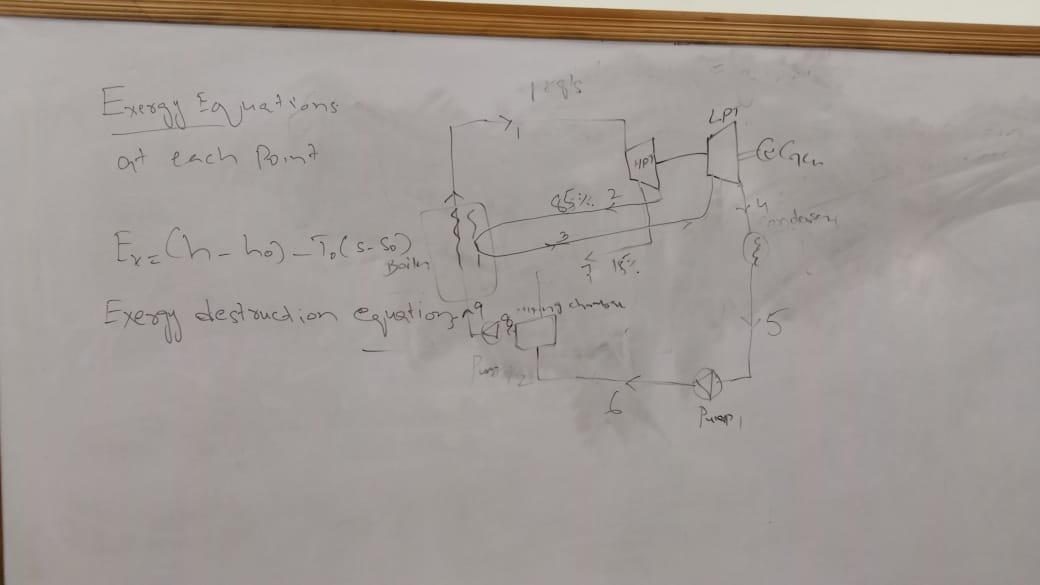 Exergy Equations
at each Point
Ex = (h - h0) - T0(s-s0)
Exergy destruction equations
1 kg/s
1
HPT
LPT
Gen
85% 2
3
7 15%
4
Condenser
Boiler
9
8
mixing chamber
Pump 2
5
6
Pump 1